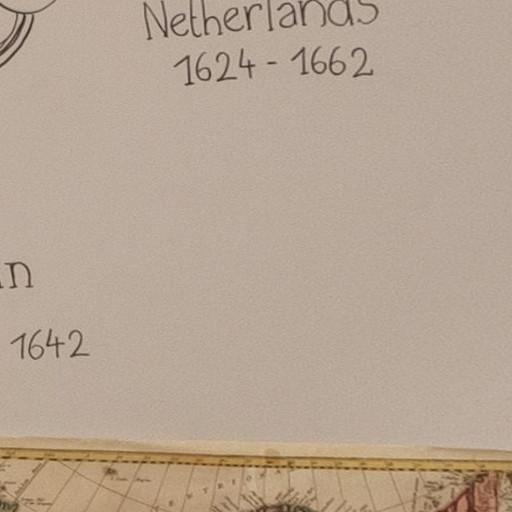 Netherlands
1624 - 1662
in
1642